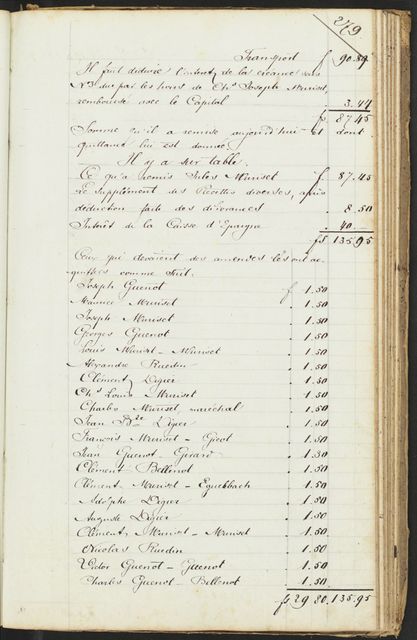 279
Transport f 90.89
Il faut déduire l'intérêt de la créance sous
N° 3 due par les hoirs de Chs Joseph Muriset,
remboursée avec le Capital . 3.44
fs 87.45
Somme qu'il a remise aujourd'hui et dont
quittance lui est donnée.
Il y a sur table.
Ce qu'a remis Jules Muriset f. 87.45
Le Supplément des Récoltes diverses, après
déduction faite des délivrances . 8.50
Intérêt de la Caisse d'Epargne . 40.—
fs 135.95
Ceux qui devaient des amendes les ont ac-
quittées comme suit.
Joseph Guenot f 1.50
Maurice Muriset . 1.50
Joseph Muriset . 1.50
Georges Guenot . 1.50
Louis Muriset - Muriset . 1.50
Alexandre Ruedin . 1.50
Clément Digier . 1.50
Chs Louis Muriset . 1.50
Charles Muriset, maréchal . 1.50
Jean Bte Digier . 1.50
François Muriset - Girot . 1.50
Jean Guenot - Girard . 1.30
Clément Bellenot . 1.50
Clément Muriset - Equebbach . 1.50
Adolphe Digier . 1.50
Auguste Digier . 1.50
Clément Muriset - Muriset . 1.50
Nicolas Ruedin . 1.50
Victor Guenot - Guenot . 1.50
Charles Guenot - Bellenot . 1.50
fs 29 80. 135.95